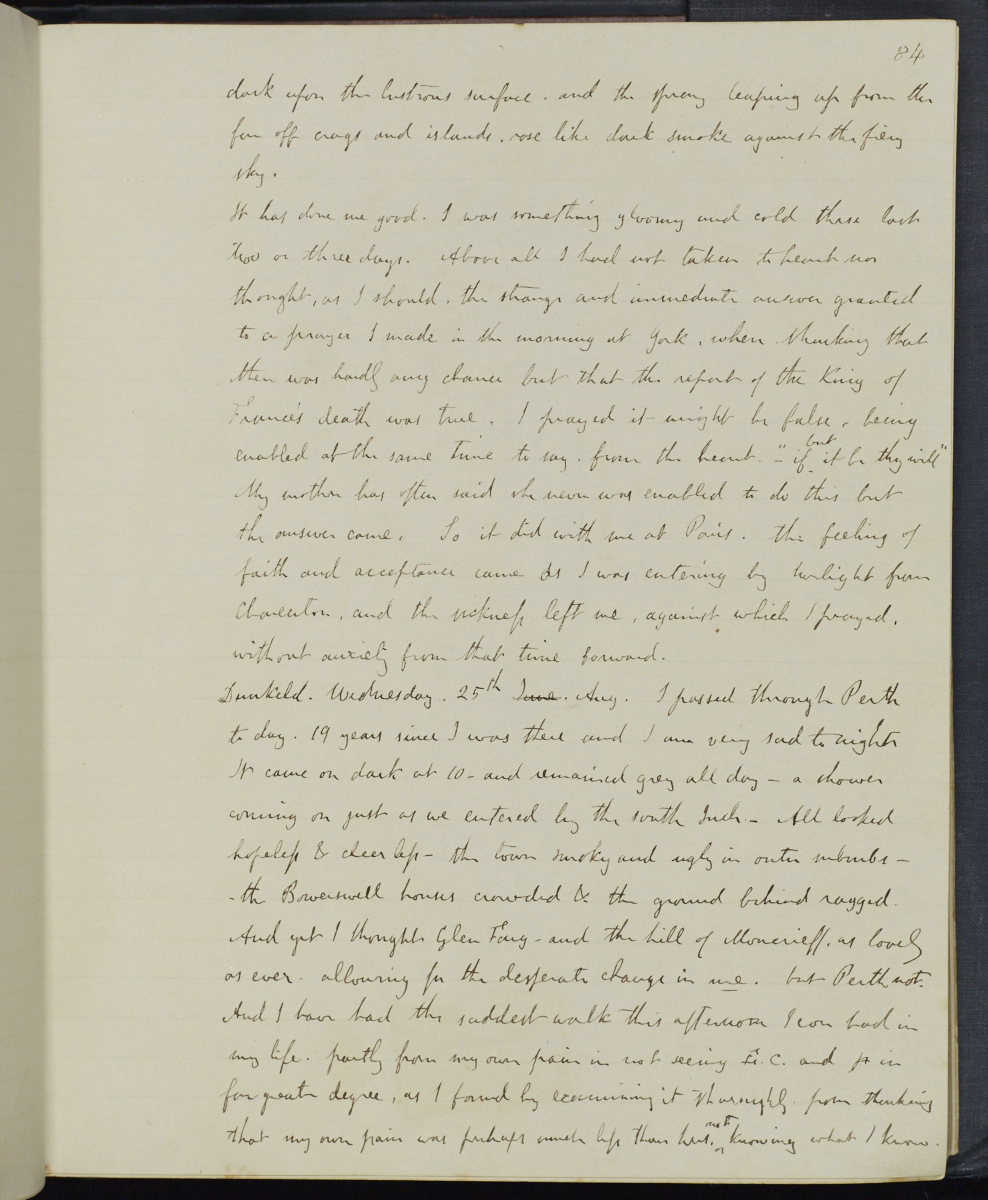 84
dark upon the lustrous surface. and the spray leaping up from the
far off crags and islands, rose like dark smoke against the fiery
sky.
It has done me good. I was something gloomy and cold these last
two or three days. Above all I had not taken to heart nor
thought, as I should, the strange and immediate answer granted
to a prayer I made in the morning at York, when thinking that
there was hardly any chance but that the report of the King of
France's death was true. I prayed it might be false, being
enabled at the same time to say. from the heart. - "if but it be thy will"
My mother has often said she never was enabled to do this but
the answer came. So it did with me at Paris. the feeling of
faith and acceptance came as I was entering by twilight from
Charenton, and the sickness left me, against which I prayed,
without anxiety from that time forward.
Dunkeld. Wednesday. 25th June. Aug. I passed through Perth
to day. 19 years since I was there and I am very sad to night
It came on dark at 10 - and remained grey all day - a shower
coming on just as we entered by the south Inch. - All looked
hopeless & cheerless - the town smoky and ugly in outer suburbs -
- the Bowerswell houses crowded & the ground behind ragged.
And yet I thought Glen Farg - and the hill of Moncrieff, as lovely
as ever. allowing for the desperate change in me. but Perth not.
And I have had the saddest walk this afternoon I ever had in
my life. partly from my own pain in not seeing E. C. and in
far greater degree, as I found by examining it thoroughly. from thinking
that my own pain was perhaps much less than hers, not knowing what I know.